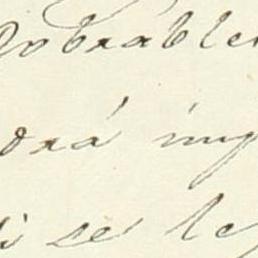 obrable
drá imp
si se le